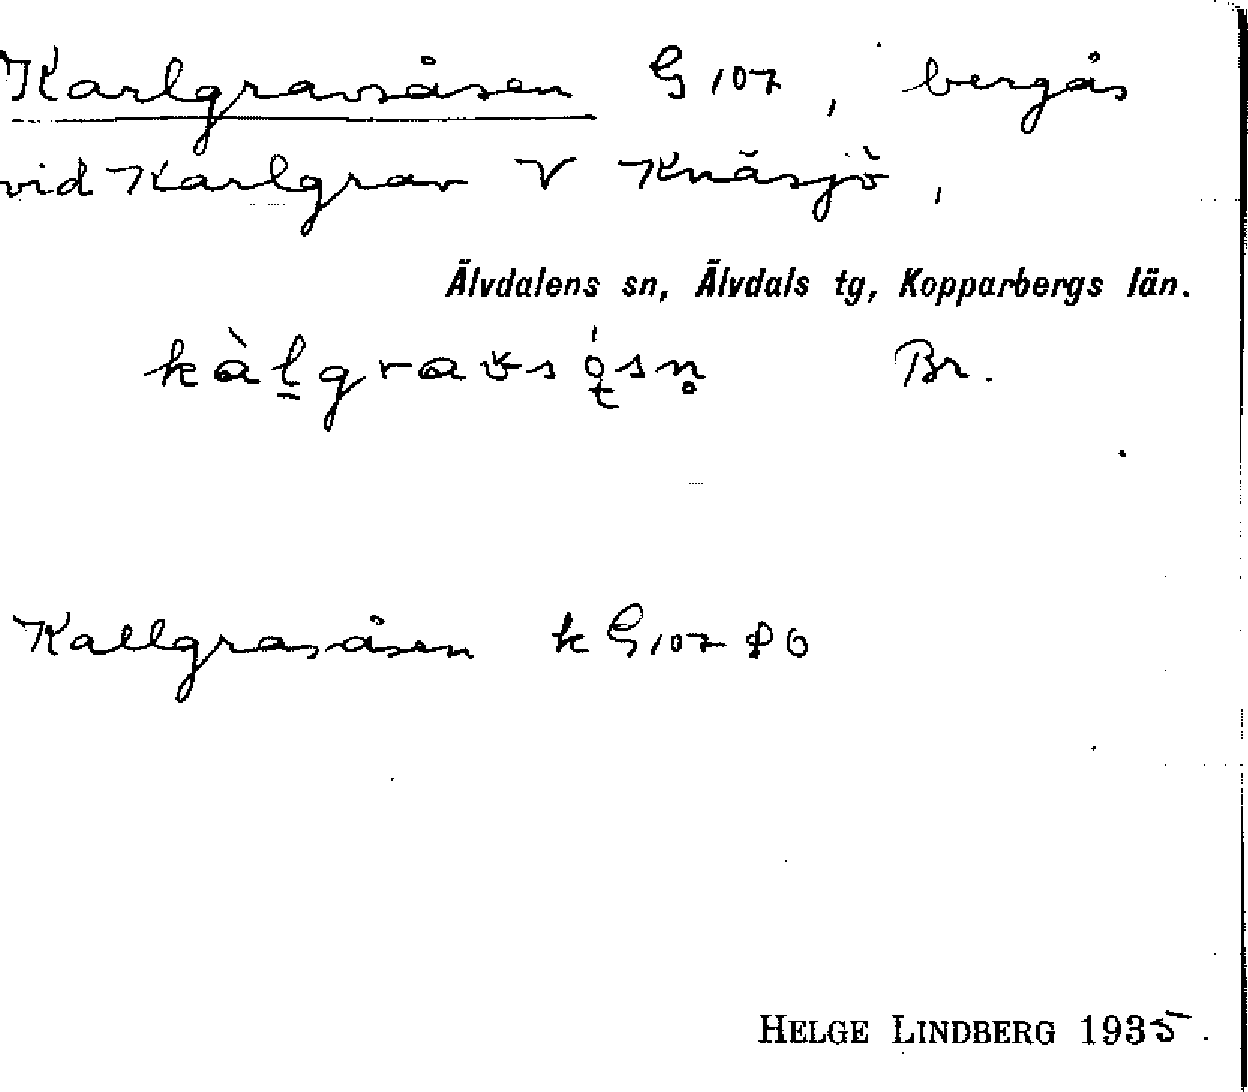 Karlgravsåsen G 107, bergås
vid Karlgrav V Knäsjö,
Älvdalens sn, Älvdals tg, Kopparbergs län.
kàl̠gravsǫ́sn̥ Br.
Kallgrasåsen k G 107
HELGE LINDBERG 1935.